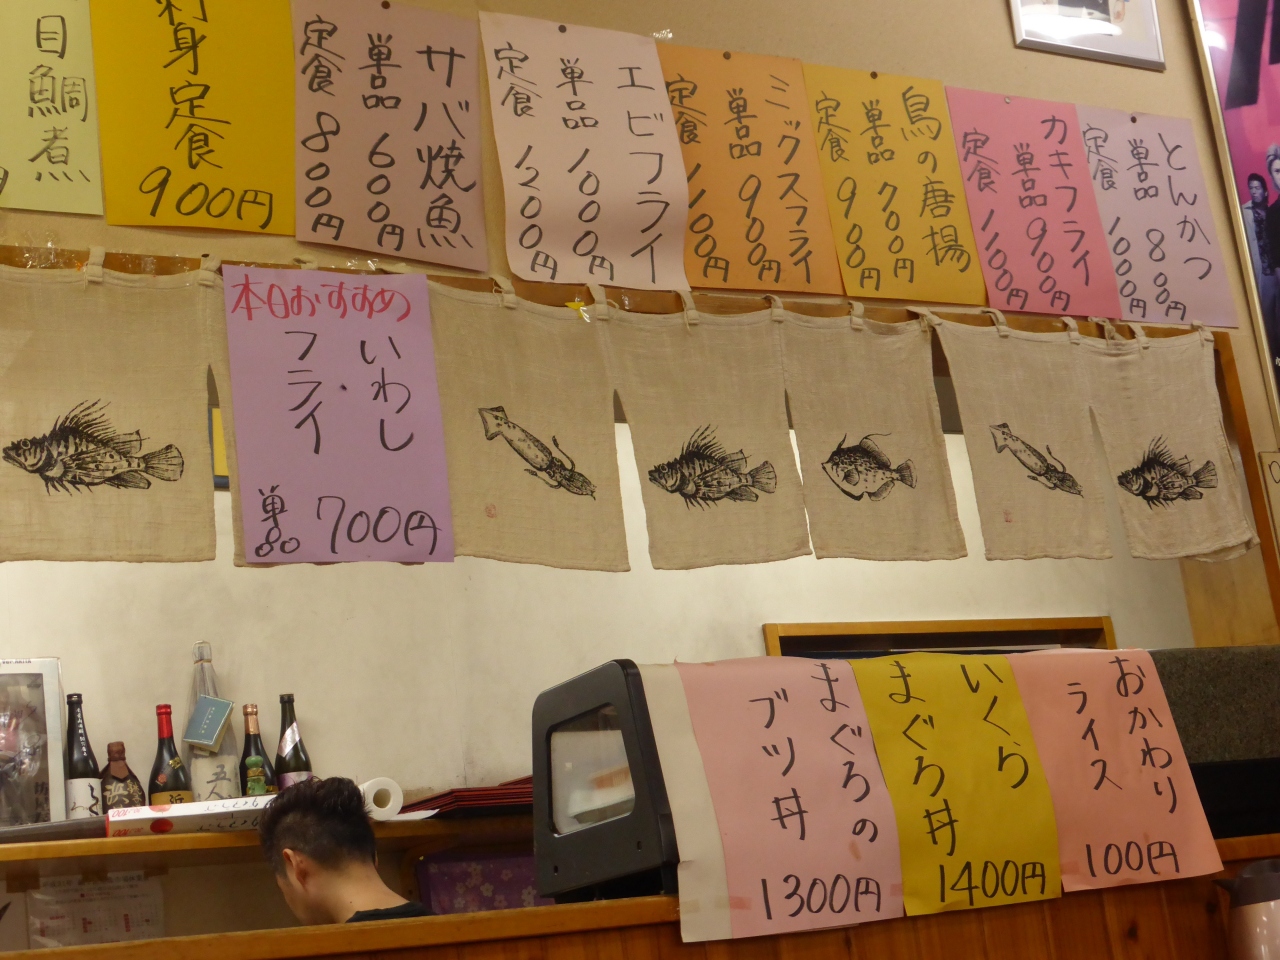 目鯛
煮
刺身定食
900円
サバ焼魚
単品600円
定食800円
エビフライ
単品1000円
定食1200円
ミックスフライ
単品900円
定食1100円
鳥の唐揚
単品700円
定食900円
カキフライ
単品900円
定食1100円
とんかつ
単品800円
定食1000円
本日おすすめ
いわし
フライ
単品 700円
まぐろの
ブツ丼
1300円
いくら
まぐろ丼
1400円
おかわり
ライス
100円